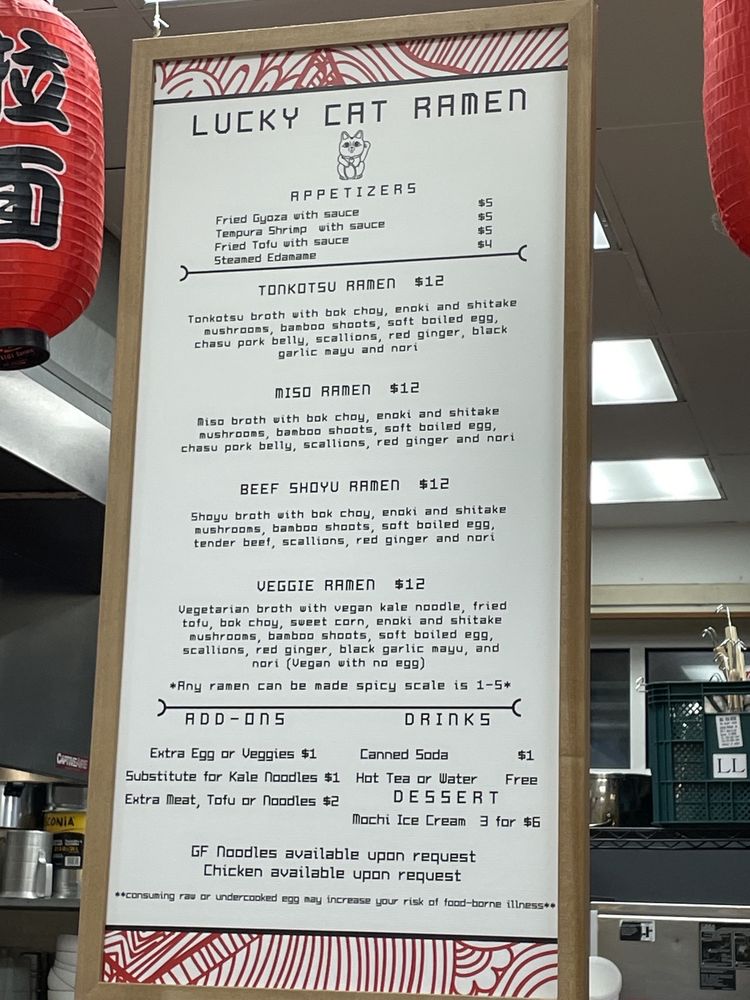 拉
面
LUCKY CAT RAMEN
APPETIZERS
Fried Gyoza with sauce $5
Tempura Shrimp with sauce $5
Fried Tofu with sauce $5
Steamed Edamame $4
TONKOTSU RAMEN $12
Tonkotsu broth with bok choy, enoki and shitake
mushrooms, bamboo shoots, soft boiled egg,
chasu pork belly, scallions, red ginger, black
garlic mayu and nori
MISO RAMEN $12
Miso broth with bok choy, enoki and shitake
mushrooms, bamboo shoots, soft boiled egg,
chasu pork belly, scallions, red ginger and nori
BEEF SHOYU RAMEN $12
Shoyu broth with bok choy, enoki and shitake
mushrooms, bamboo shoots, soft boiled egg,
tender beef, scallions, red ginger and nori
VEGGIE RAMEN $12
Vegetarian broth with vegan kale noodle, fried
tofu, bok choy, sweet corn, enoki and shitake
mushrooms, bamboo shoots, soft boiled egg,
scallions, red ginger, black garlic mayu, and
nori (Vegan with no egg)
*Any ramen can be made spicy scale is 1-5*
ADD-ONS
Extra Egg or Veggies $1
Substitute for Kale Noodles $1
Extra Meat, Tofu or Noodles $2
DRINKS
Canned Soda $1
Hot Tea or Water Free
DESSERT
Mochi Ice Cream 3 for $6
GF Noodles available upon request
Chicken available upon request
**consuming raw or undercooked egg may increase your risk of food-borne illness**
CAPTIVEAIRE
CONIA
LL